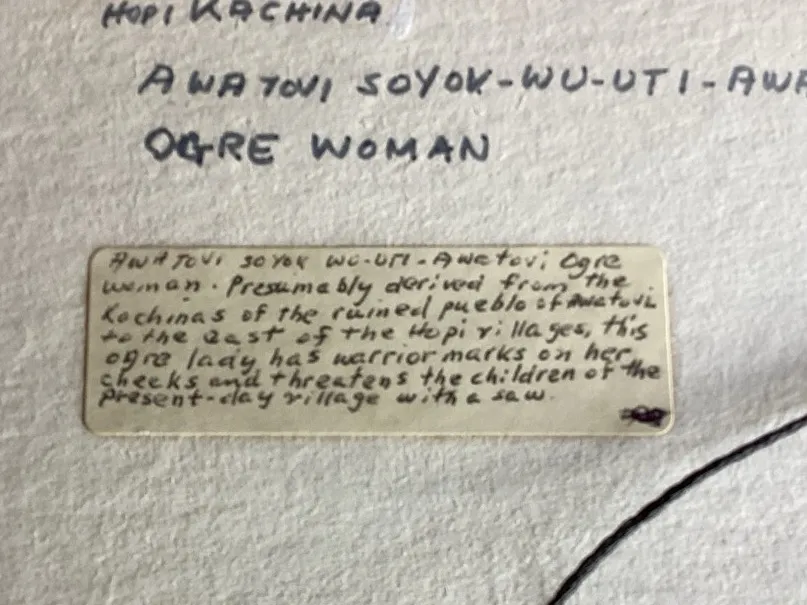 HOPI KACHINA
AWATOVI SOYOK-WU-UTI-AWA
OGRE WOMAN
AWATOVI SOYOK WU-UTI-Awatovi Ogre
woman. Presumably derived from the
Kachinas of the ruined pueblo of Awatovi
to the east of the Hopi villages, this
ogre lady has warrior marks on her
cheeks and threatens the children of the
present-day village with a saw.